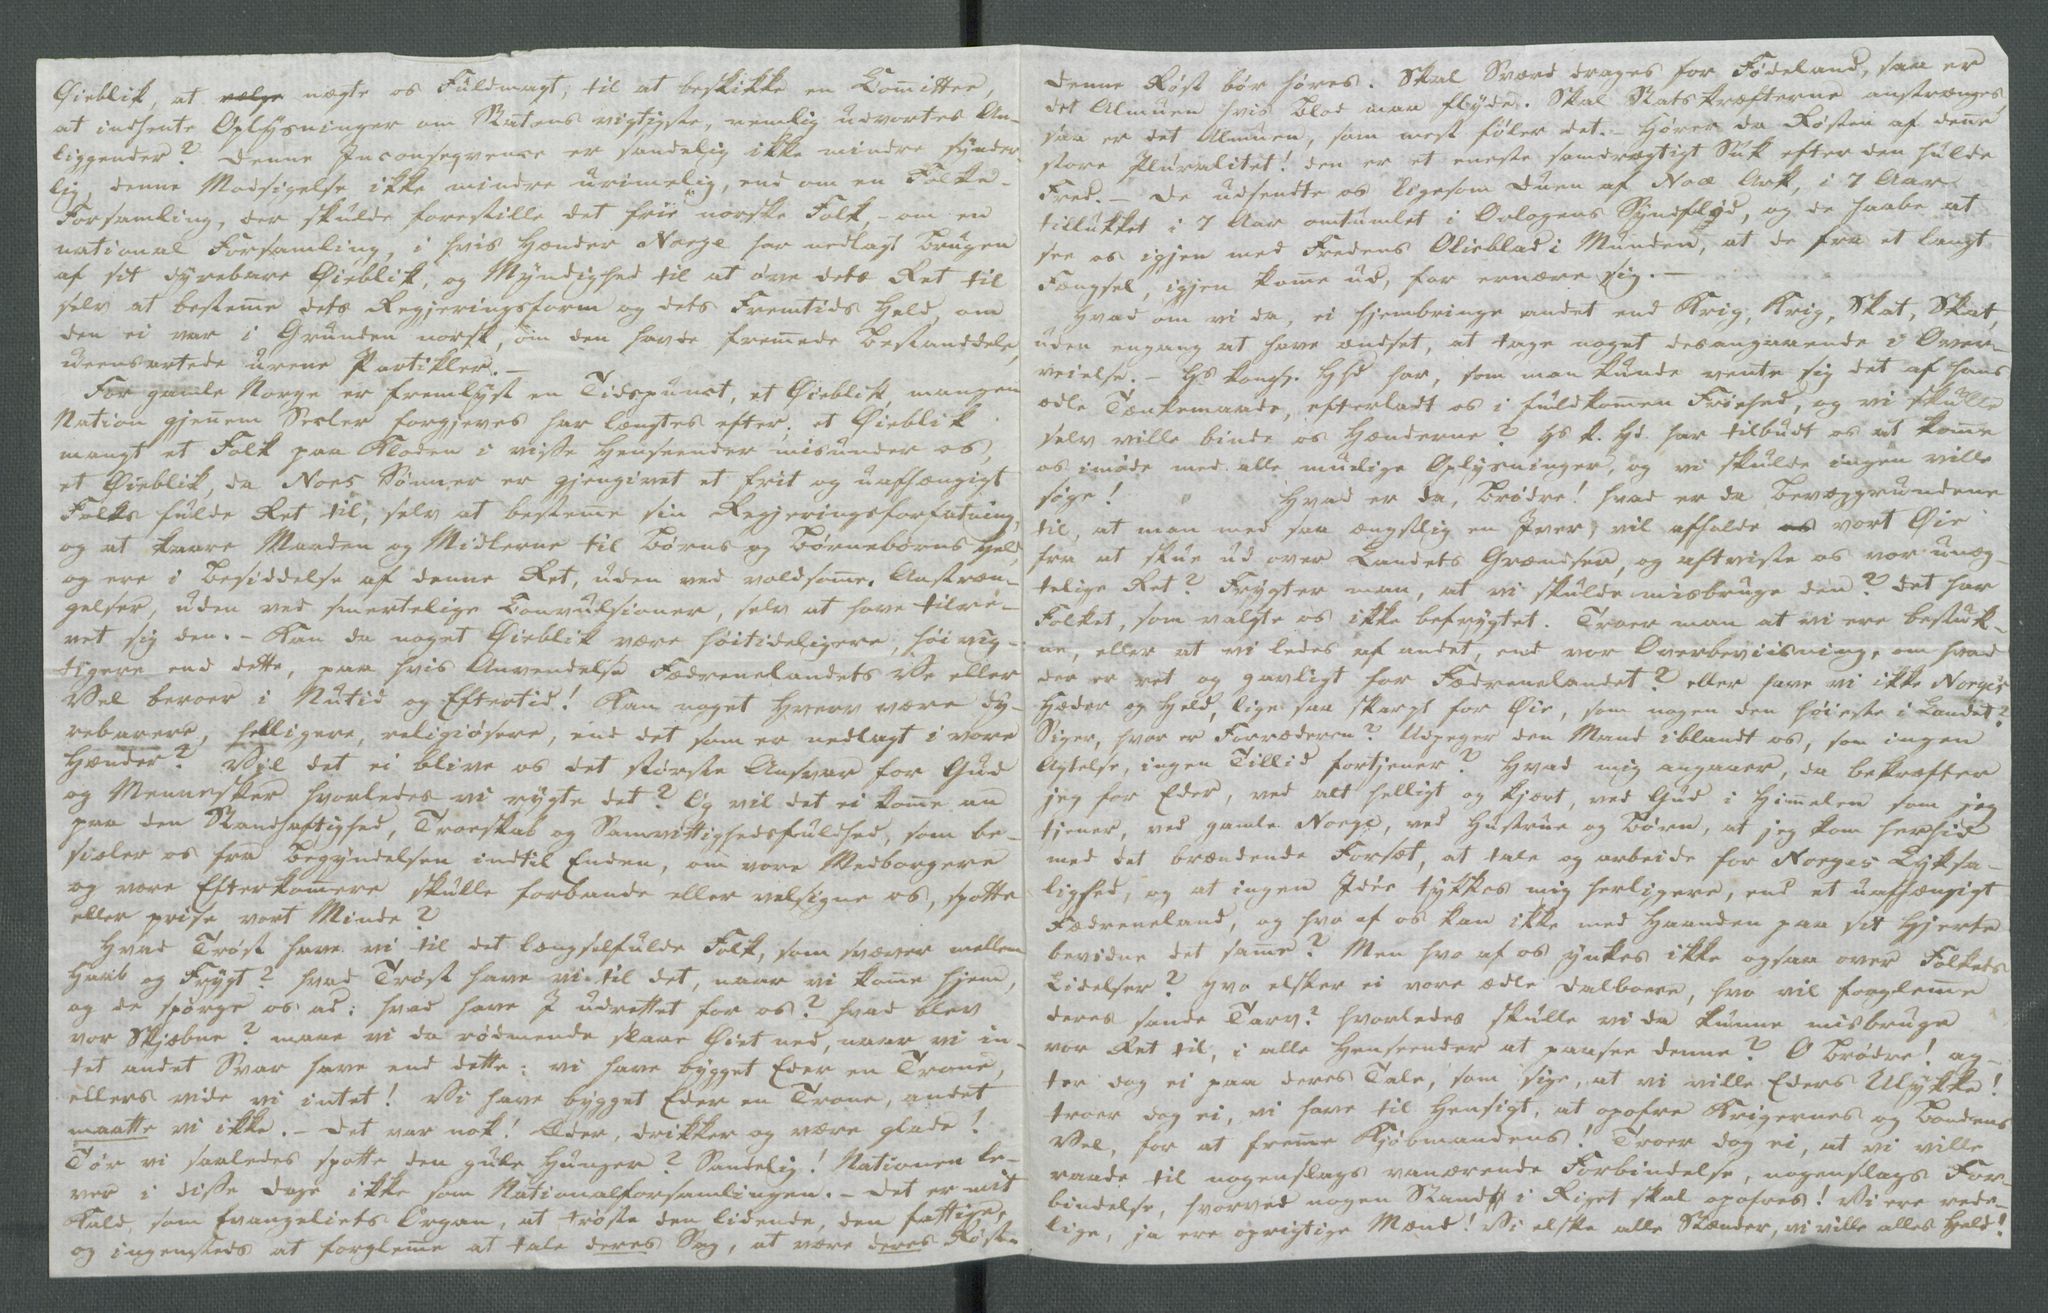 Øieblik, at vælge nægte os Fuldmagt, til at beskikke en Committee,
at indhente Oplysninger om Statens vigtigste, nemlig udvortes An-
liggender? Denne Inconseqvence er sandelig ikke mindre synder-
lig, denne Modsigelse ikke mindre urimelig, end om en Folke-
Forsamling, der skulde forestille det frie norske Folk, - om en
national Forsamling, i hvis Hænder Norge har nedlagt Brugen
af sit dyrebare Øieblik, og Myndighed til at øve dets Ret til
selv at bestemme dets Regjeringsform og dets Fremtids Held, om
den ei var i Grunden norsk, om den havde fremmede Bestanddele,
ueensartede urene Partikler. -
For gamle Norge er fremlyst en Tidspunct, et Øieblik, mangen
Nation gjennem Secler forgjeves har længtes efter; et Øieblik
mangt et Folk paa Kloden i visse Henseender misunder os,
et Øieblik, da Nores Sønner er gjengivet et frit og uafhængigt
Folks fulde Ret til, selv at bestemme sin Regjeringsforfatning,
og at kaare Maaden og Midlerne til Børns og Børnebørns Held,
og ere i Besiddelse af denne Ret, uden ved voldsomme Anstræn-
gelser, uden ved smertelige Convulsioner, selv at have tilrø-
vet sig den. - Kan da noget Øieblik være høitideligere, høivig-
tigere end dette, paa hvis Anvendelse Fædrenelandets Ve eller
Vel beroer i Nutid og Eftertid! Kan noget Hverv være dy-
rebarere, helligere, religiøsere, end det som er nedlagt i vore
Hænder? Vil det ei blive os det største Ansvar for Gud
og Mennesker hvorledes vi rygte det? Og vil det ei komme an
paa den Standhaftighed, Troeskab og Samvittighedsfuldhed, som be-
sjæler os fra Begyndelsen indtil Enden, om vore Medborgere
og vore Efterkommere skulle forbande eller velsigne os, spotte
eller prise vort Minde?
Hvad Trøst have vi til det længselfulde Folk, som svæver mellem
Haab og Frygt? hvad Trøst have vi til det, naar vi komme hjem,
og de spørge os ad: hvad have I udrettet for os? hvad blev
vor Skjæbne? maae vi da rødmende slaae Øiet ned, naar vi in-
tet andet Svar have end dette: vi have bygget Eder en Trone,
ellers vide vi intet! Vi have bygget Eder en Trone, andet
maatte vi ikke. - Det var nok! Æder, drikker og være glade!
Tør vi saaledes spotte den gule Hunger? Sandelig! Nationen le-
ver i disse Dage ikke som Nationalforsamlingen. - Det er mit
Kald, som Evangeliets Organ, at trøste den lidende, den fattige,
og ingensteds at forglemme at tale deres Sag, at være deres Røst.
Denne Røst bør høres. Skal Sværd drages for Fødeland, saa er
det Almuen hvis Blod maa flyde. Skal Statskræfterne anstrænges,
saa er det Almuen, som mest føler det. - Hører da Røsten af denne
store Pluralitet! den er et eneste samdrægtigt Suk efter den hulde
Fred. - De udsendte os ligesom Duen af Noæ Ark, i 7 Aar
tillukket i 7 Aar omtumlet i Orlogens Syndflod, og de haabe at
see os igjen med Fredens Olieblad i Munden, at de fra et langt
Fængsel, igjen komme ud, for ernære sig. -
Hvad om vi da, ei hjembringe andet end Krig, Krig, Skat, Skat,
uden engang at have ændset, at tage noget desangaaende i Over-
veielse. - Hs kongl. Hhd har, som man kunde vente sig det af hans
ædle Tænkemaade, efterladt os i fuldkommen Friehed, og vi skulle
selv ville binde os Hænderne? Hs k. Hd. har tilbudt os at komme
os imøde med alle mulige Oplysninger, og vi skulde ingen ville
søge! Hvad er da, Brødre! hvad er da Bevæggrundene
til, at man med saa ængstlig en Iver, vil afholde os vort Øie
fra at skue ud over Landets Grændser, og aftviste os vor unæg-
telige Ret? Frygter man, at vi skulde misbruge den? Det har
Folket, som valgte os ikke befrygtet. Troer man at vi ere bestuk-
ne, eller at vi ledes af andet, end vor Overbeviisning, om hvad
der er ret og gavligt for Fædrenelandet? eller have vi ikke Norges
Hæder og Held, lige saa skarpt for Øie, som nogen den høieste i Landet?
Siger, hvor er Forræderen? Udpeger den Mand iblandt os, som ingen
Agtelse, ingen Tillid fortjener? Hvad mig angaaer, da bekræfter
jeg for Eder, ved alt helligt og kjært, ved Gud i Himmelen som jeg
tjener, ved gamle Norge, ved Hustrue og Børn, at jeg kom herhid
med det brændende Forsæt, at tale og arbeide for Norges Lyksa-
lighed, og at ingen Idée tykkes mig herligere, end et uafhængigt
Fædreneland, og hvo af os kan ikke med Haanden paa sit Hjerte
bevidne det samme? Men hvo af os ynkes ikke ogsaa over Folkets
Lidelser? Hvo elsker ei vore ædle Dalboere, hvo vil forglemme
deres sande Tarv? hvorledes skulle vi da kunne misbruge
vor Ret til, i alle Henseender at paasee denne? O Brødre! ag-
ter dog ei paa deres Tale, som sige, at vi ville Eders Ulykke!
troer dog ei, vi have til Hensigt, at opofre Krigernes og Bondens
Vel, for at fremme Kjøbmandens! Troer dog ei, at vi ville
raade til nogenslags vanærende Forbindelse, nogenslags For-
bindelse, hvorved nogen Stand i Riget skal opofres! Vi ere rede-
lige, ja ere oprigtige Mænd! Vi elske alle Stænder, vi ville alles Held!